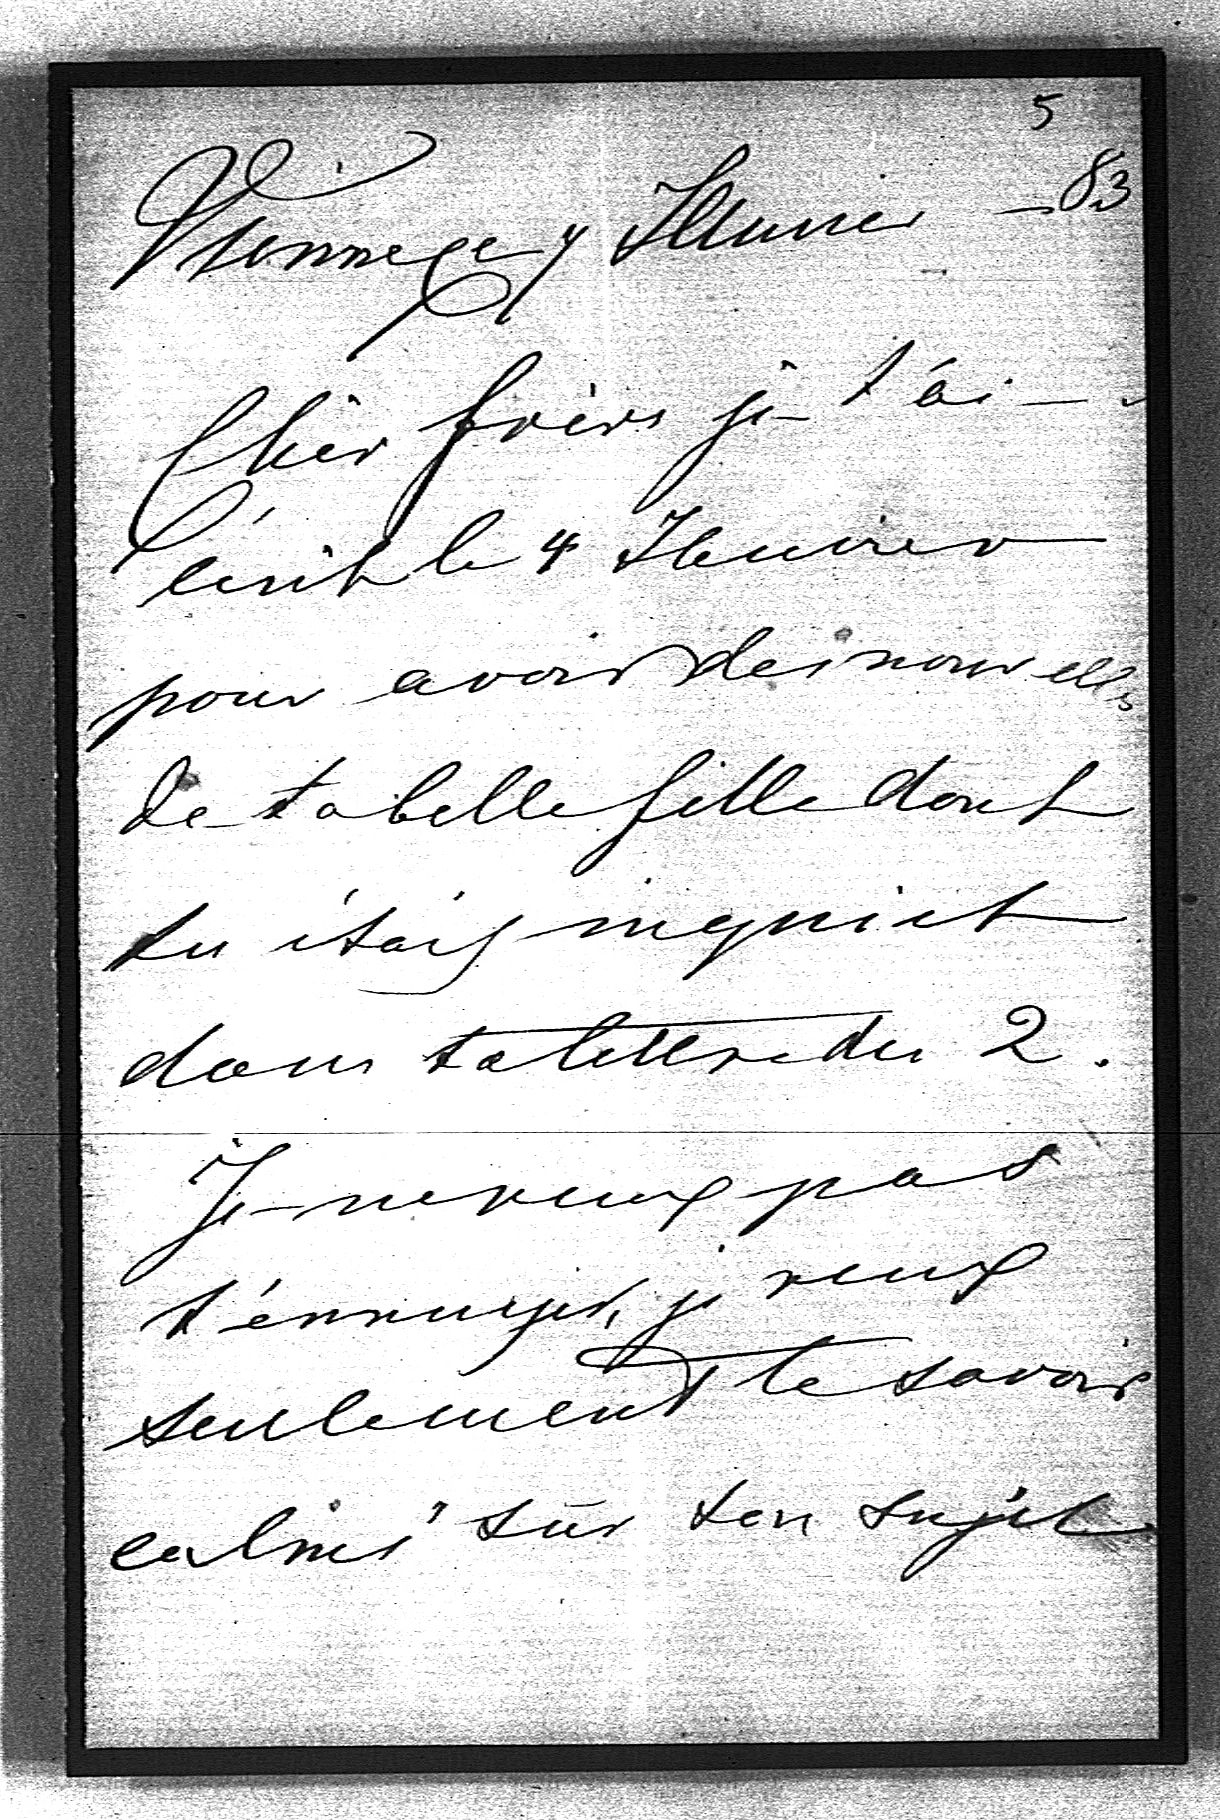 5
83
Cher frère je t'ai
écrit le 4
pour avoir des nouvelles
de ta belle fille dont
tu étais inquiet
dans ta lettre du 2.
Je ne veux pas
t'ennuyer, je veux
seulement te savoir
calmé sur son sujet